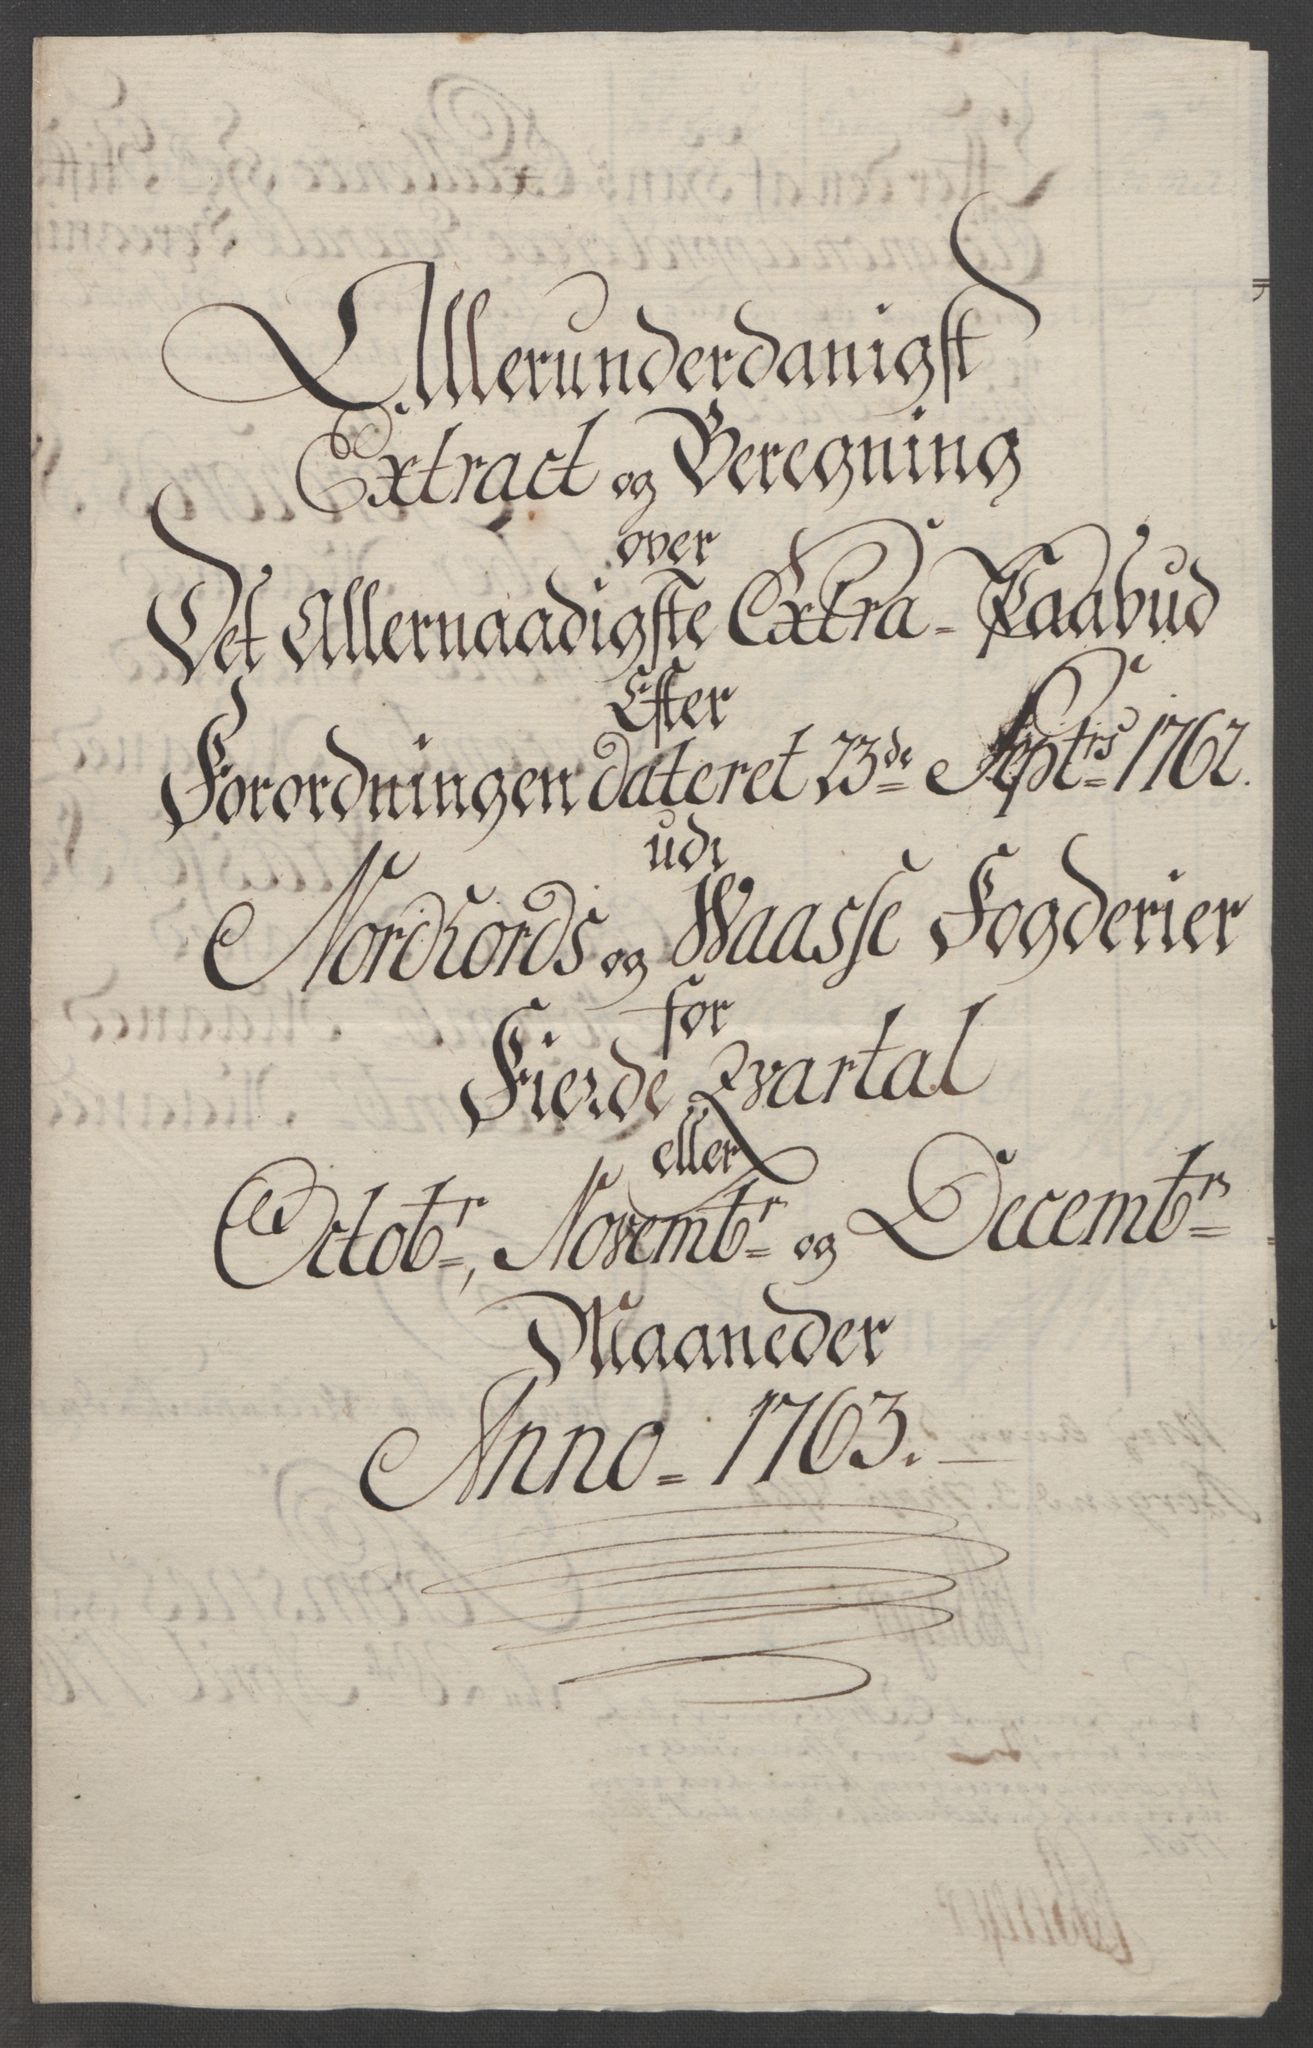 Allerunderdanigst
Extract og Beregning
over
Det Allernaadigste Extra-Paabud
Efter
Forordningen dateret 23de Septrs 1762.
udi
Nordhords og Waasse Fogderier
for
Fierde Qvartal
eller
Octobr, Novembr og Decembrs
Maaneder
Anno = 1763.